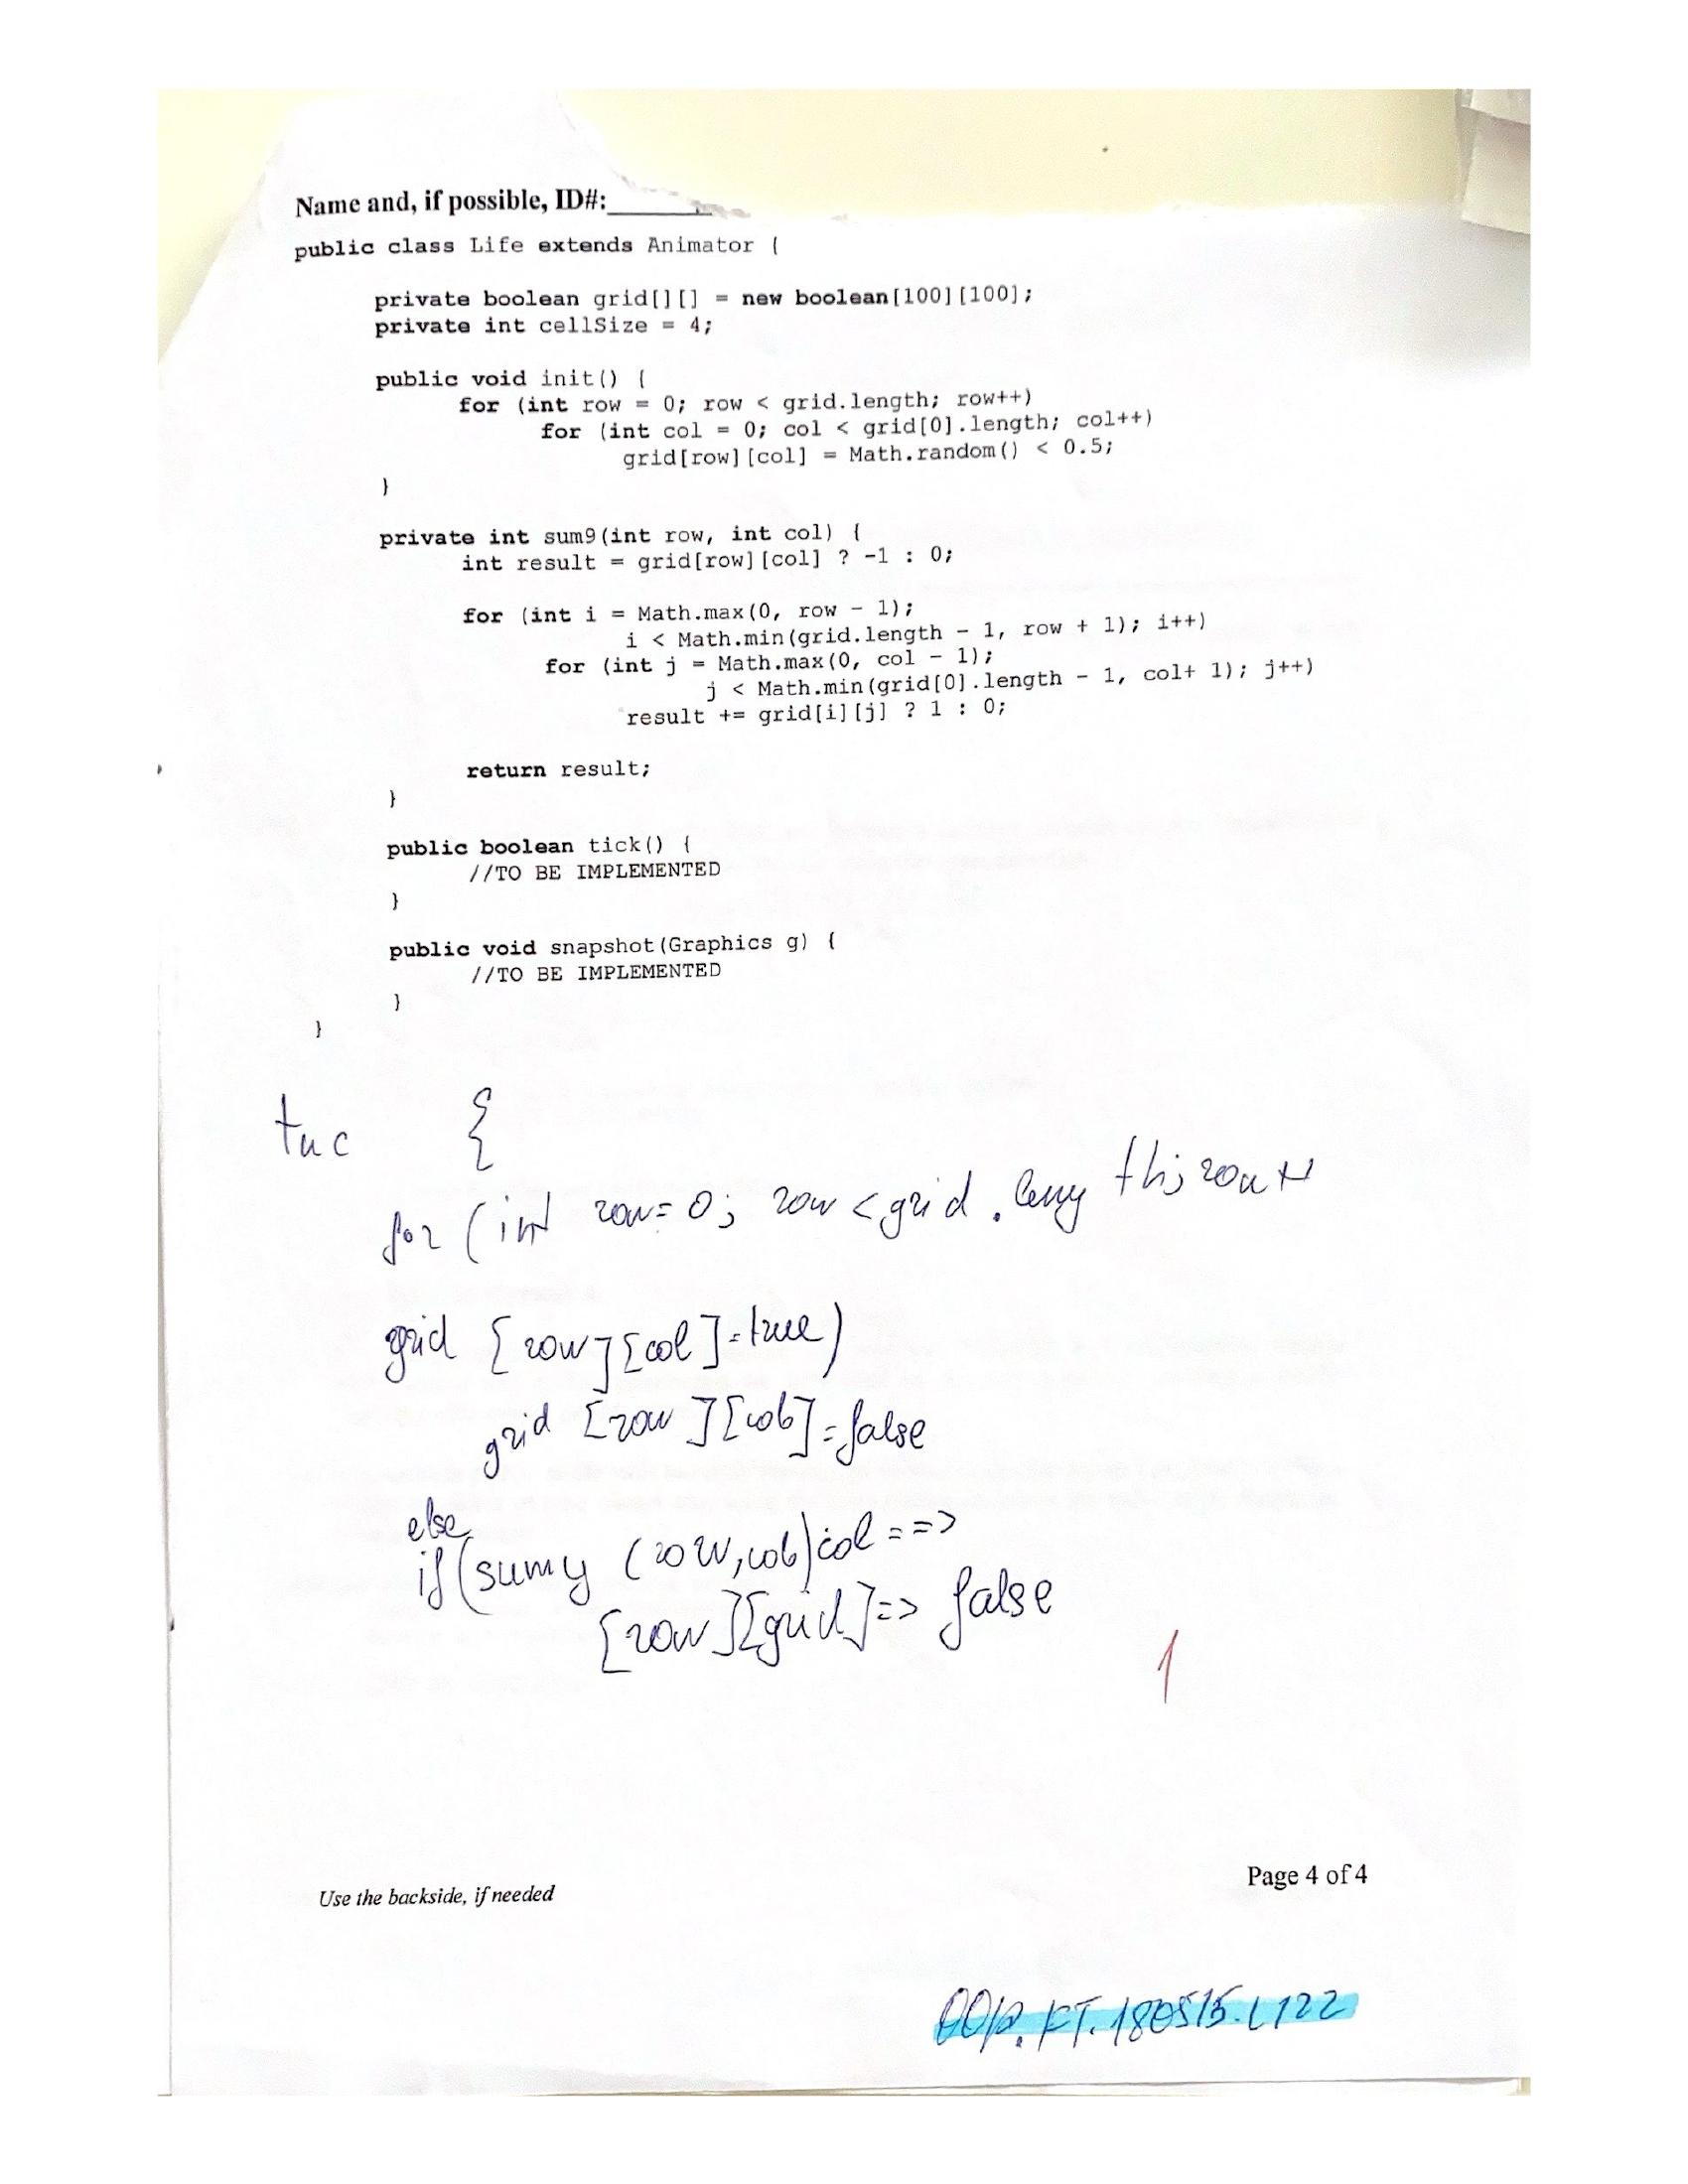 Name and, if possible, ID#:
public class Life extends Animator {
private boolean grid[][] = new boolean[100][100];
private int cellSize = 4;
public void init() {
for (int row = 0; row < grid.length; row++)
for (int col = 0; col < grid[0].length; col++)
grid[row][col] = Math.random() < 0.5;
}
private int sum9(int row, int col) {
int result = grid[row][col] ? -1 : 0;
for (int i = Math.max(0, row - 1);
i < Math.min(grid.length - 1, row + 1); i++)
for (int j = Math.max(0, col - 1);
j < Math.min(grid[0].length - 1, col+ 1); j++)
result += grid[i][j] ? 1 : 0;
return result;
}
public boolean tick() {
//TO BE IMPLEMENTED
}
public void snapshot(Graphics g) {
//TO BE IMPLEMENTED
}
}
{
for (int row=0; row <grid.
grid [row][col]=true)
grid [row][col]=false
else
if (sumy (row,col)col ==>
[row][grid]=> false
1
Use the backside, if needed
Page 4 of 4